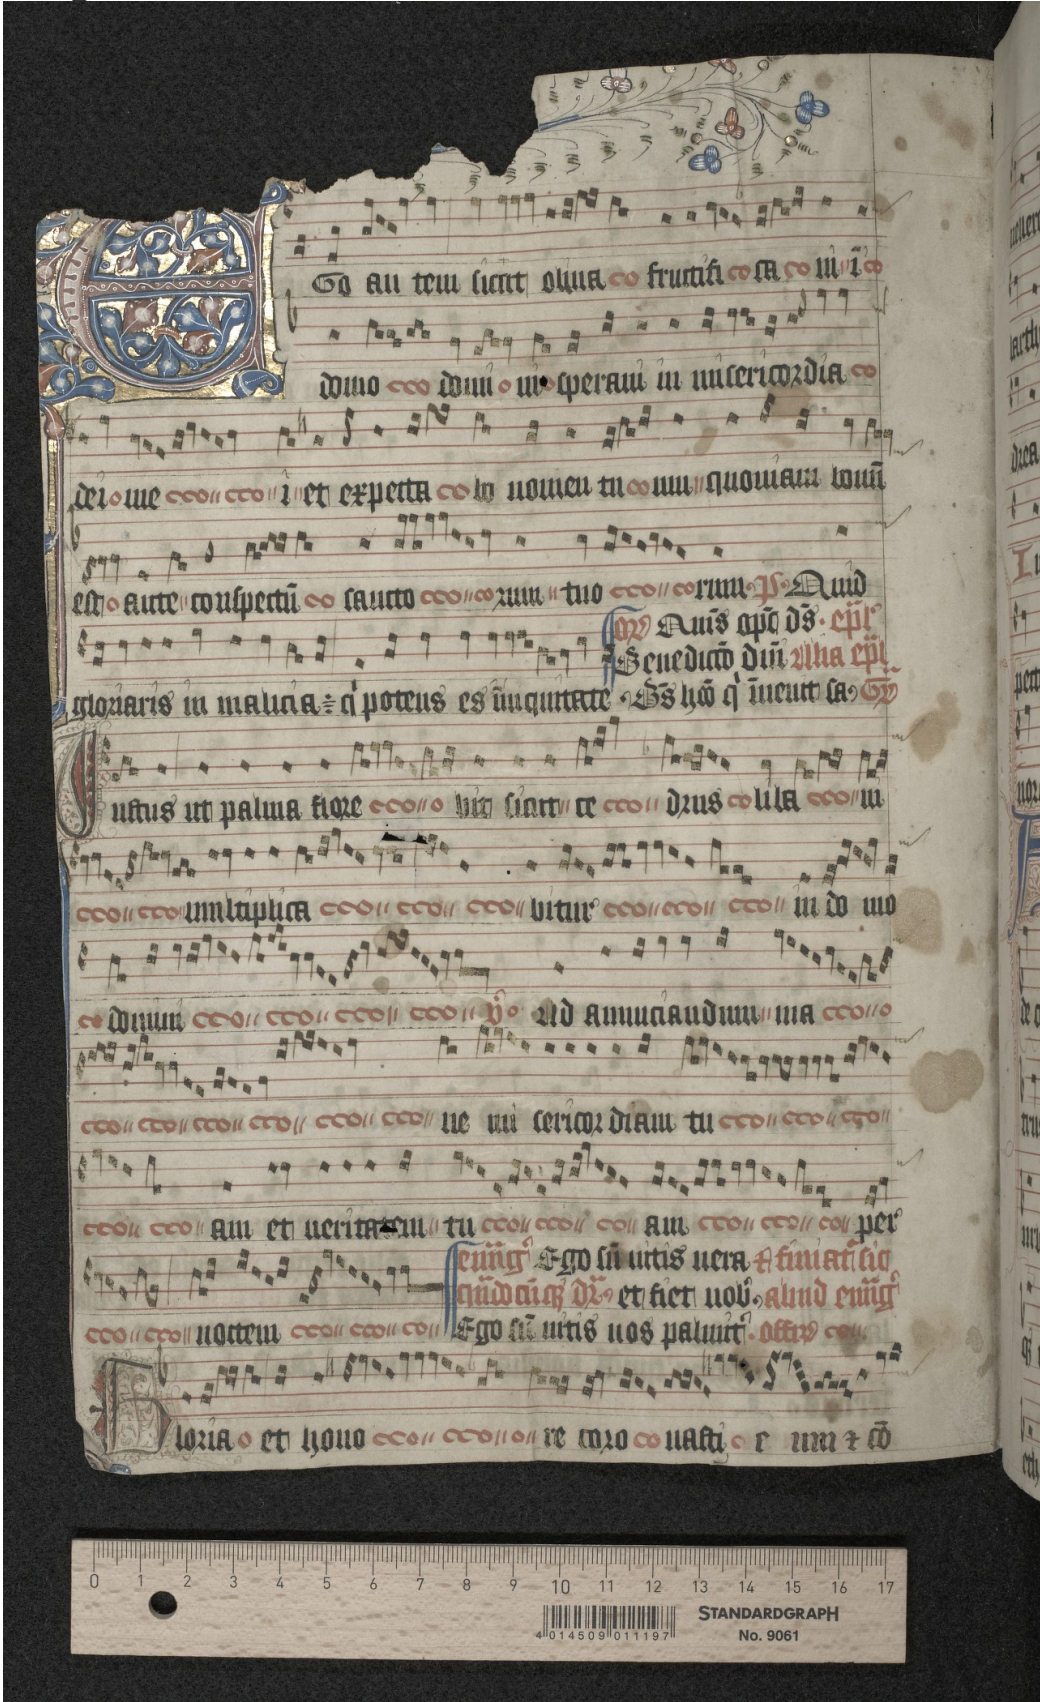 EGo au tem sicut oliua fructifi ca in i
domo domi ni speraui in misericordia
dei me i et expecta bo nomen tu um quoniam bonū
est ante conspectū sancto rum tuo rum ps Quid
or Quis apd ds epl
Benedictō dm Alia epl
gloriaris in malicia qi potens es in iniquitate Bs hō qi inenit sa Gr
Iustus ut palma flore bit sicut ce drus liba ni
multiplica bitur in do mo
domini v Ad annuciandum ma
ne mi sericor diam tu
am et ueritatem tu am per
euūg Ego sū uitis uera et finiat sic
quidcūqz dr et fiet uob aliud euūg
noctem Ego sū uitis uos palmit offr
Gloria et hono re coro nasti e um et cō
0 1 2 3 4 5 6 7 8 9 10 11 12 13 14 15 16 17
STANDARDGRAPH
No. 9061
4 014509 011197